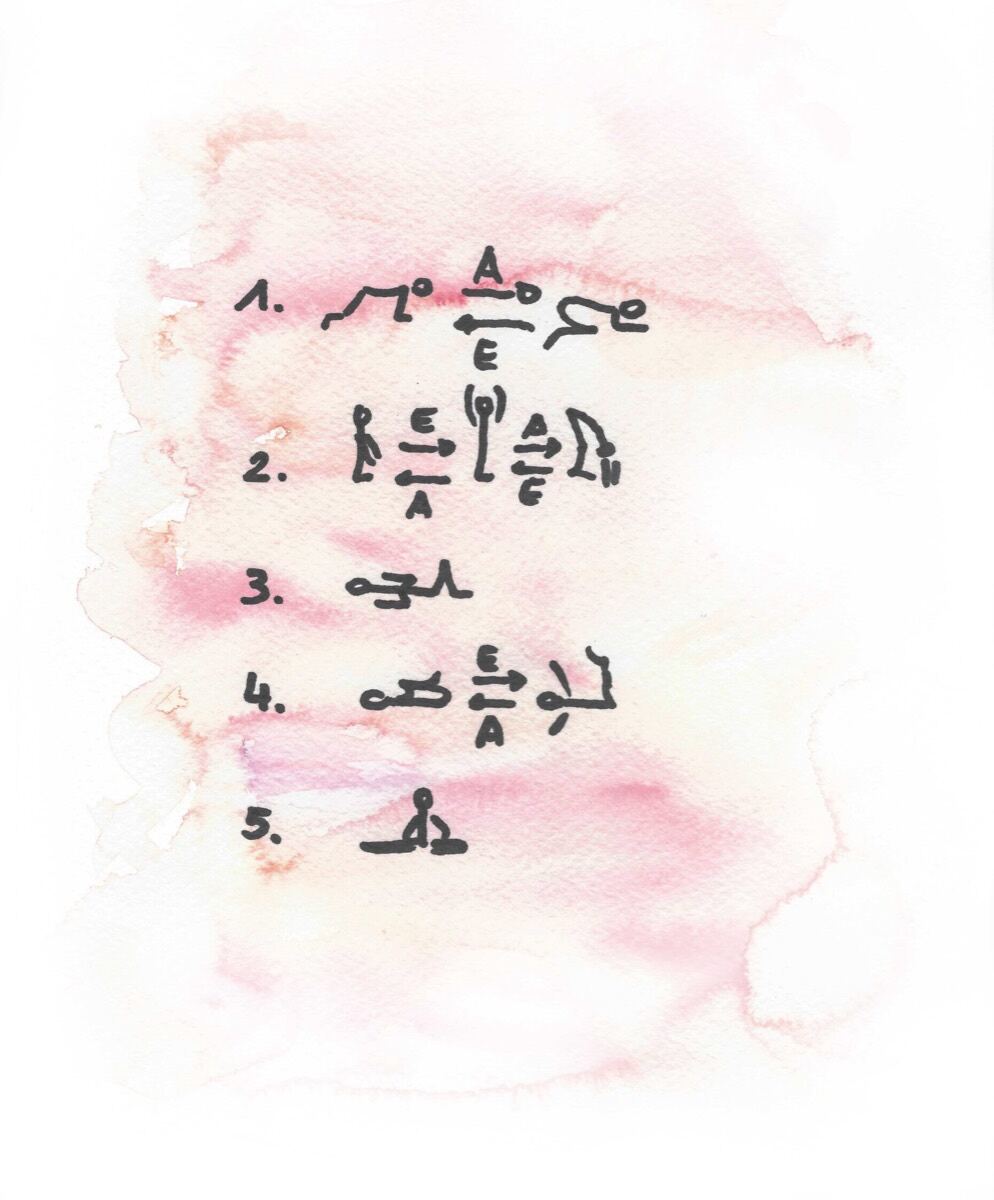 1. A
E
2. E A
A E
3.
4. E
A
5.